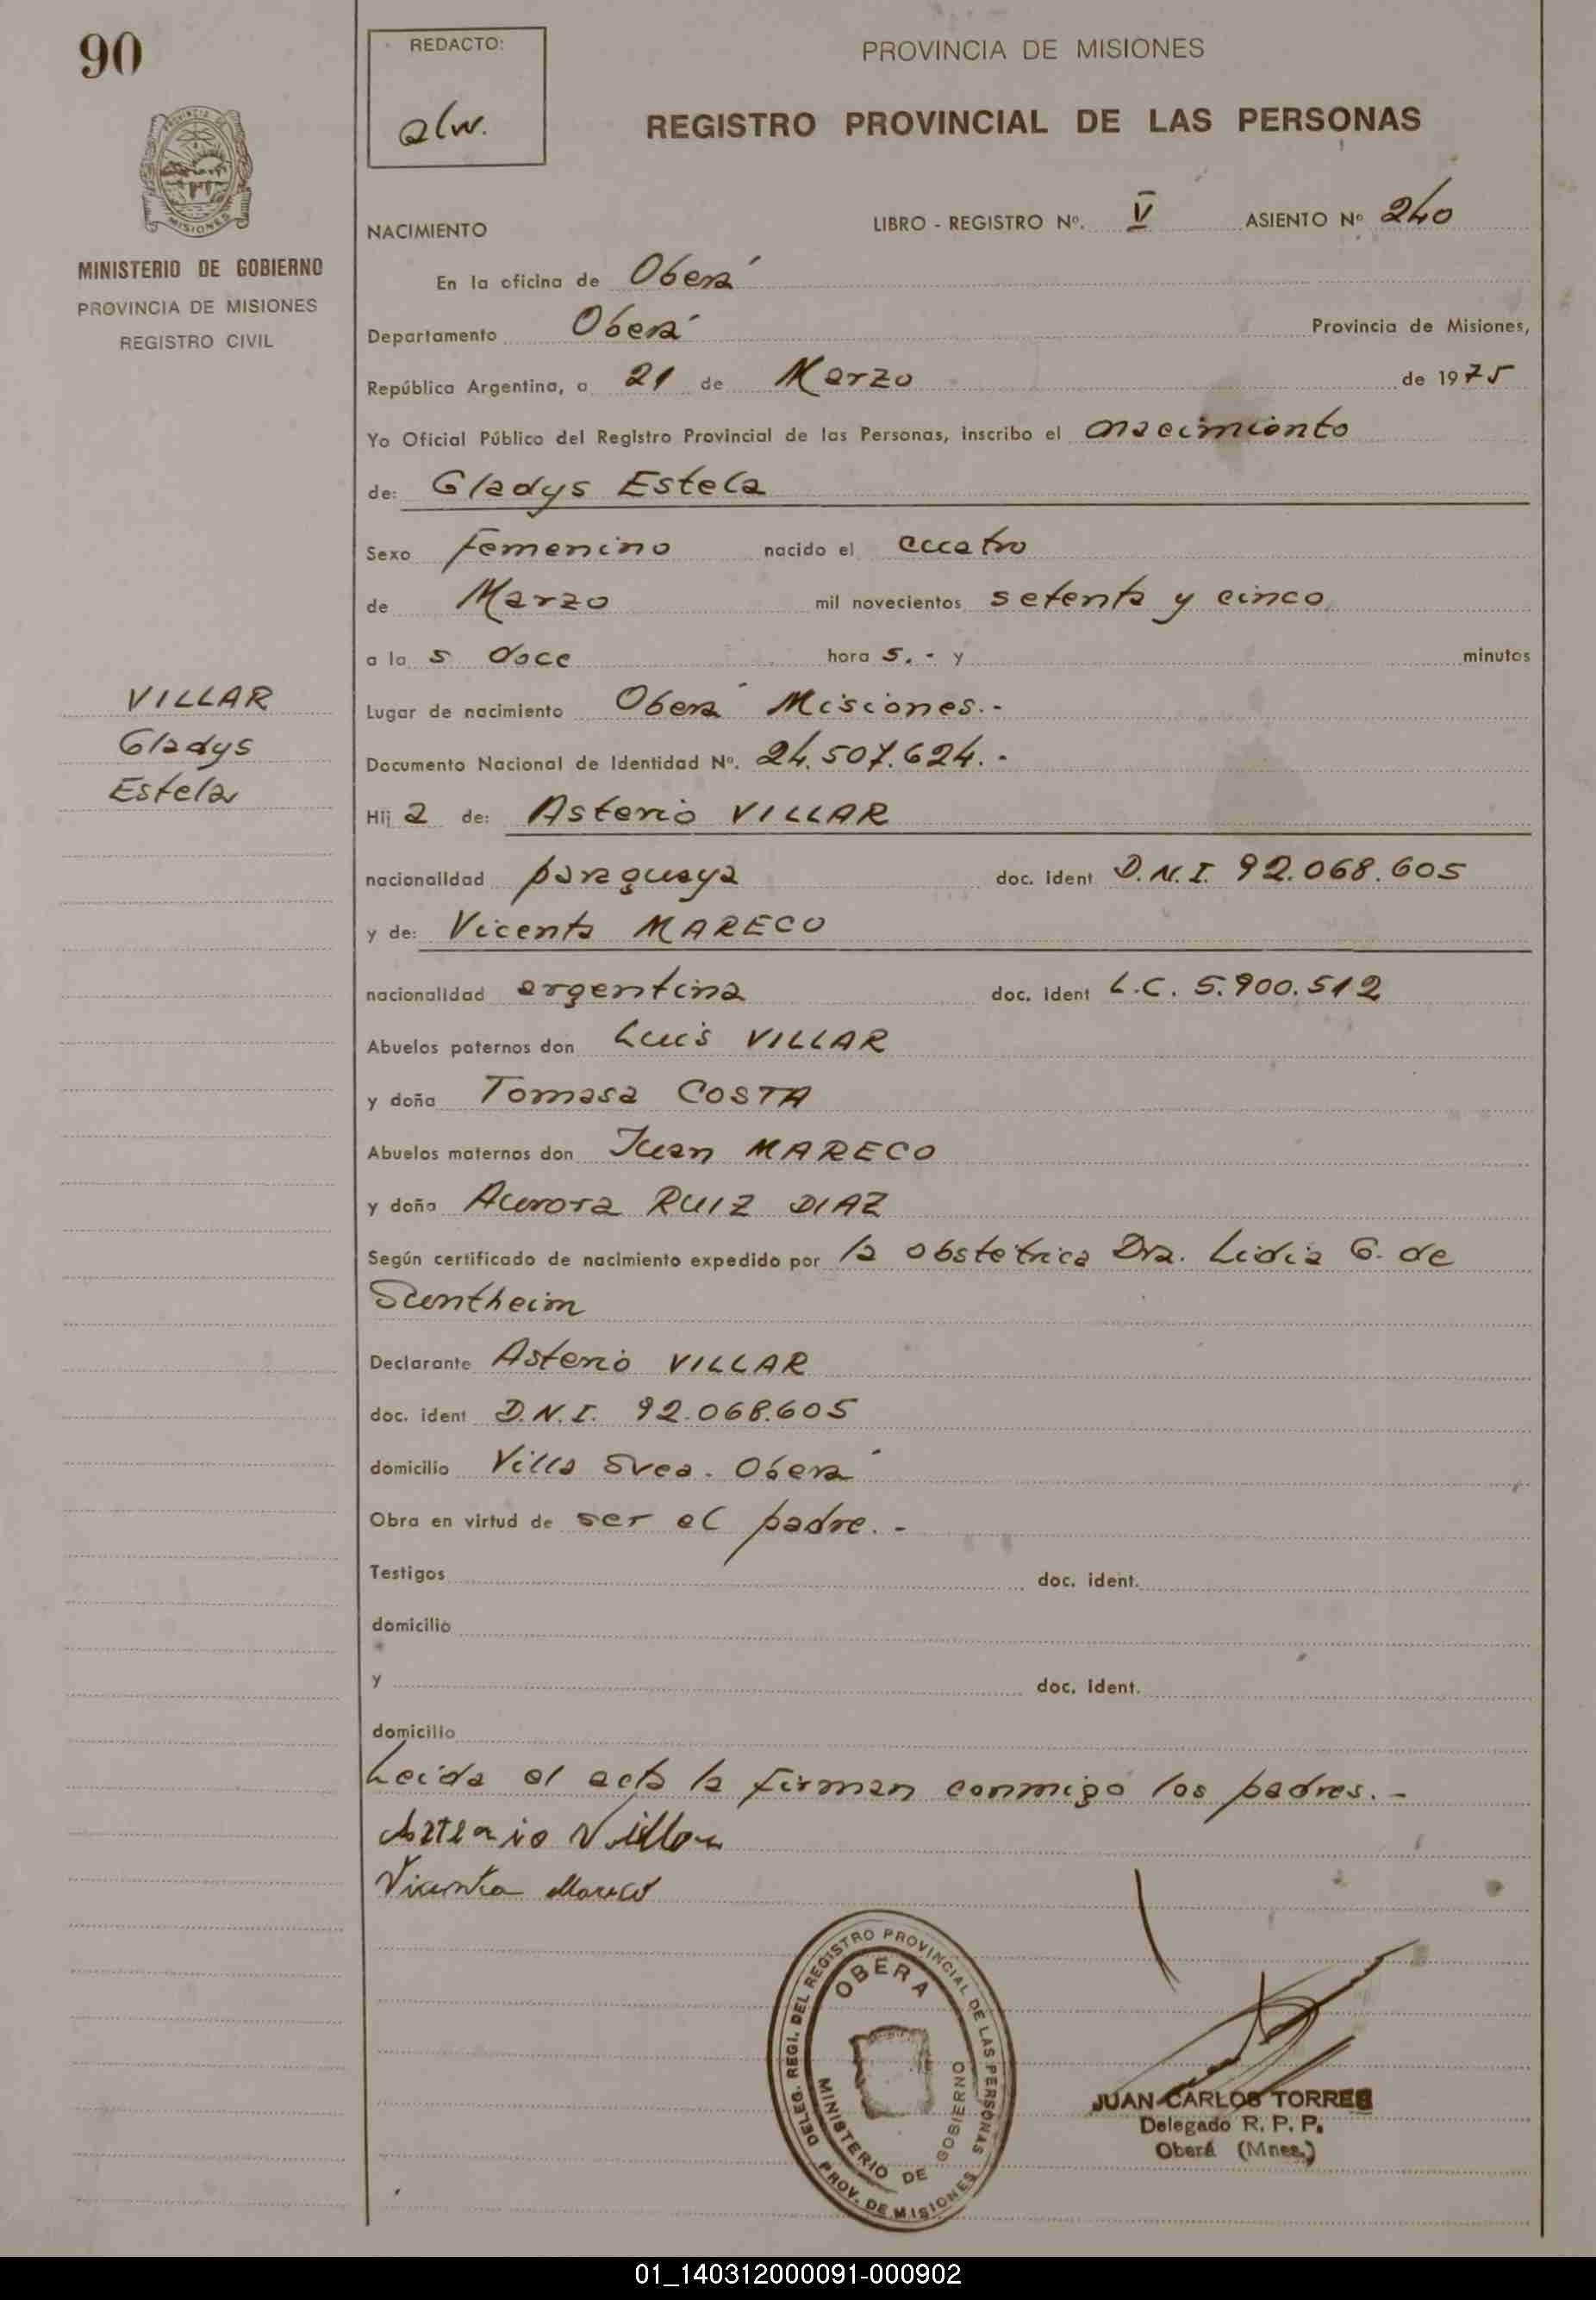 90
REDACTO:
alw.
PROVINCIA DE MISIONES
REGISTRO PROVINCIAL DE LAS PERSONAS
PROVINCIA DE
MISIONES
MINISTERIO DE GOBIERNO
PROVINCIA DE MISIONES
REGISTRO CIVIL
NACIMIENTO LIBRO - REGISTRO Nº. V ASIENTO Nº 240
En la oficina de Oberá
Departamento Oberá Provincia de Misiones,
República Argentina, a 21 de Marzo de 1975
Yo Oficial Público del Registro Provincial de las Personas, inscribo el nacimiento
de: Gladys Estela
Sexo femenino nacido el cuatro
de Marzo mil novecientos setenta y cinco
a la s doce hora s.- y minutos
Lugar de nacimiento Oberá Misiones.-
Documento Nacional de Identidad Nº. 24.507.624.-
VILLAR
Gladys
Estela
Hij a de: Asterio VILLAR
nacionalidad paraguaya doc. ident D.N.I. 92.068.605
y de: Vicenta MARECO
nacionalidad argentina doc. ident L.C. 5.900.512
Abuelos paternos don Luis VILLAR
y doña Tomasa COSTA
Abuelos maternos don Juan MARECO
y doña Aurora RUIZ DIAZ
Según certificado de nacimiento expedido por la obstetrica Dra. Lidia G. de
Suntheim
Declarante Asterio VILLAR
doc. ident D.N.I. 92.068.605
domicilio Villa Svea. Oberá
Obra en virtud de ser el padre.-
Testigos doc. ident.
domicilio
y doc. ident.
domicilio
Leida el acta la firman conmigo los padres.-
Asterio Villar
Vicenta Mareco
DELEG. REGI. DEL REGISTRO PROVINCIAL DE LAS PERSONAS
OBERA
MINISTERIO DE GOBIERNO
PROV. DE MISIONES
JUAN CARLOS TORRES
Delegado R. P. P.
Oberá (Mnes.)
01_140312000091-000902